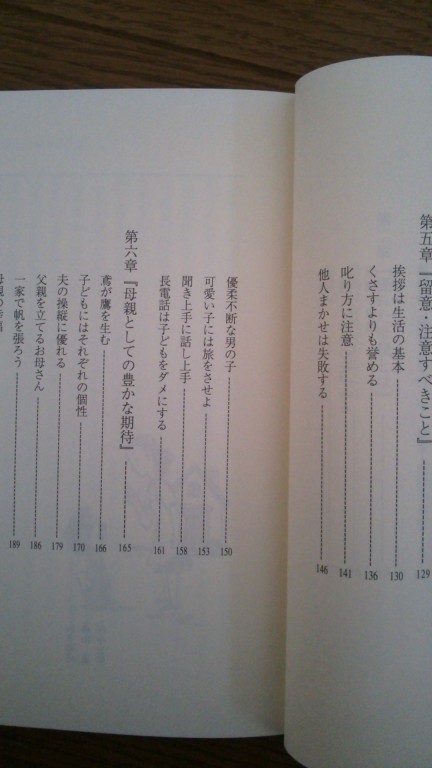 第五章『留意・注意すべきこと』 129
挨拶は生活の基本 130
くさすよりも誉める 136
叱り方に注意 141
他人まかせは失敗する 146
優柔不断な男の子 150
可愛い子には旅をさせよ 153
聞き上手に話し上手 158
長電話は子どもをダメにする 161
第六章『母親としての豊かな期待』 165
鳶が鷹を生む 166
子どもにはそれぞれの個性 170
夫の操縦に優れる 179
父親を立てるお母さん 186
一家で帆を張ろう 189